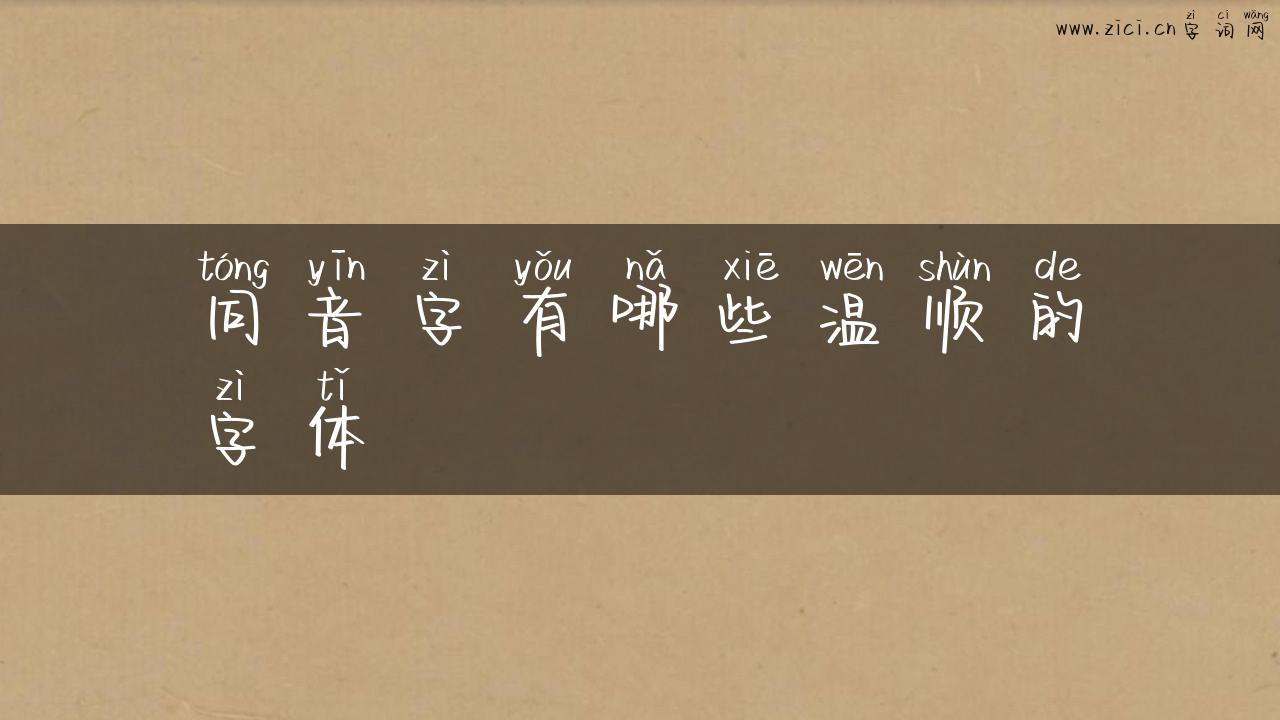 zì cí wǎng
www.zici.cn 字 词 网
tóng yīn zì yǒu nǎ xiē wēn shùn de
同 音 字 有 哪 些 温 顺 的
zì tǐ
字 体